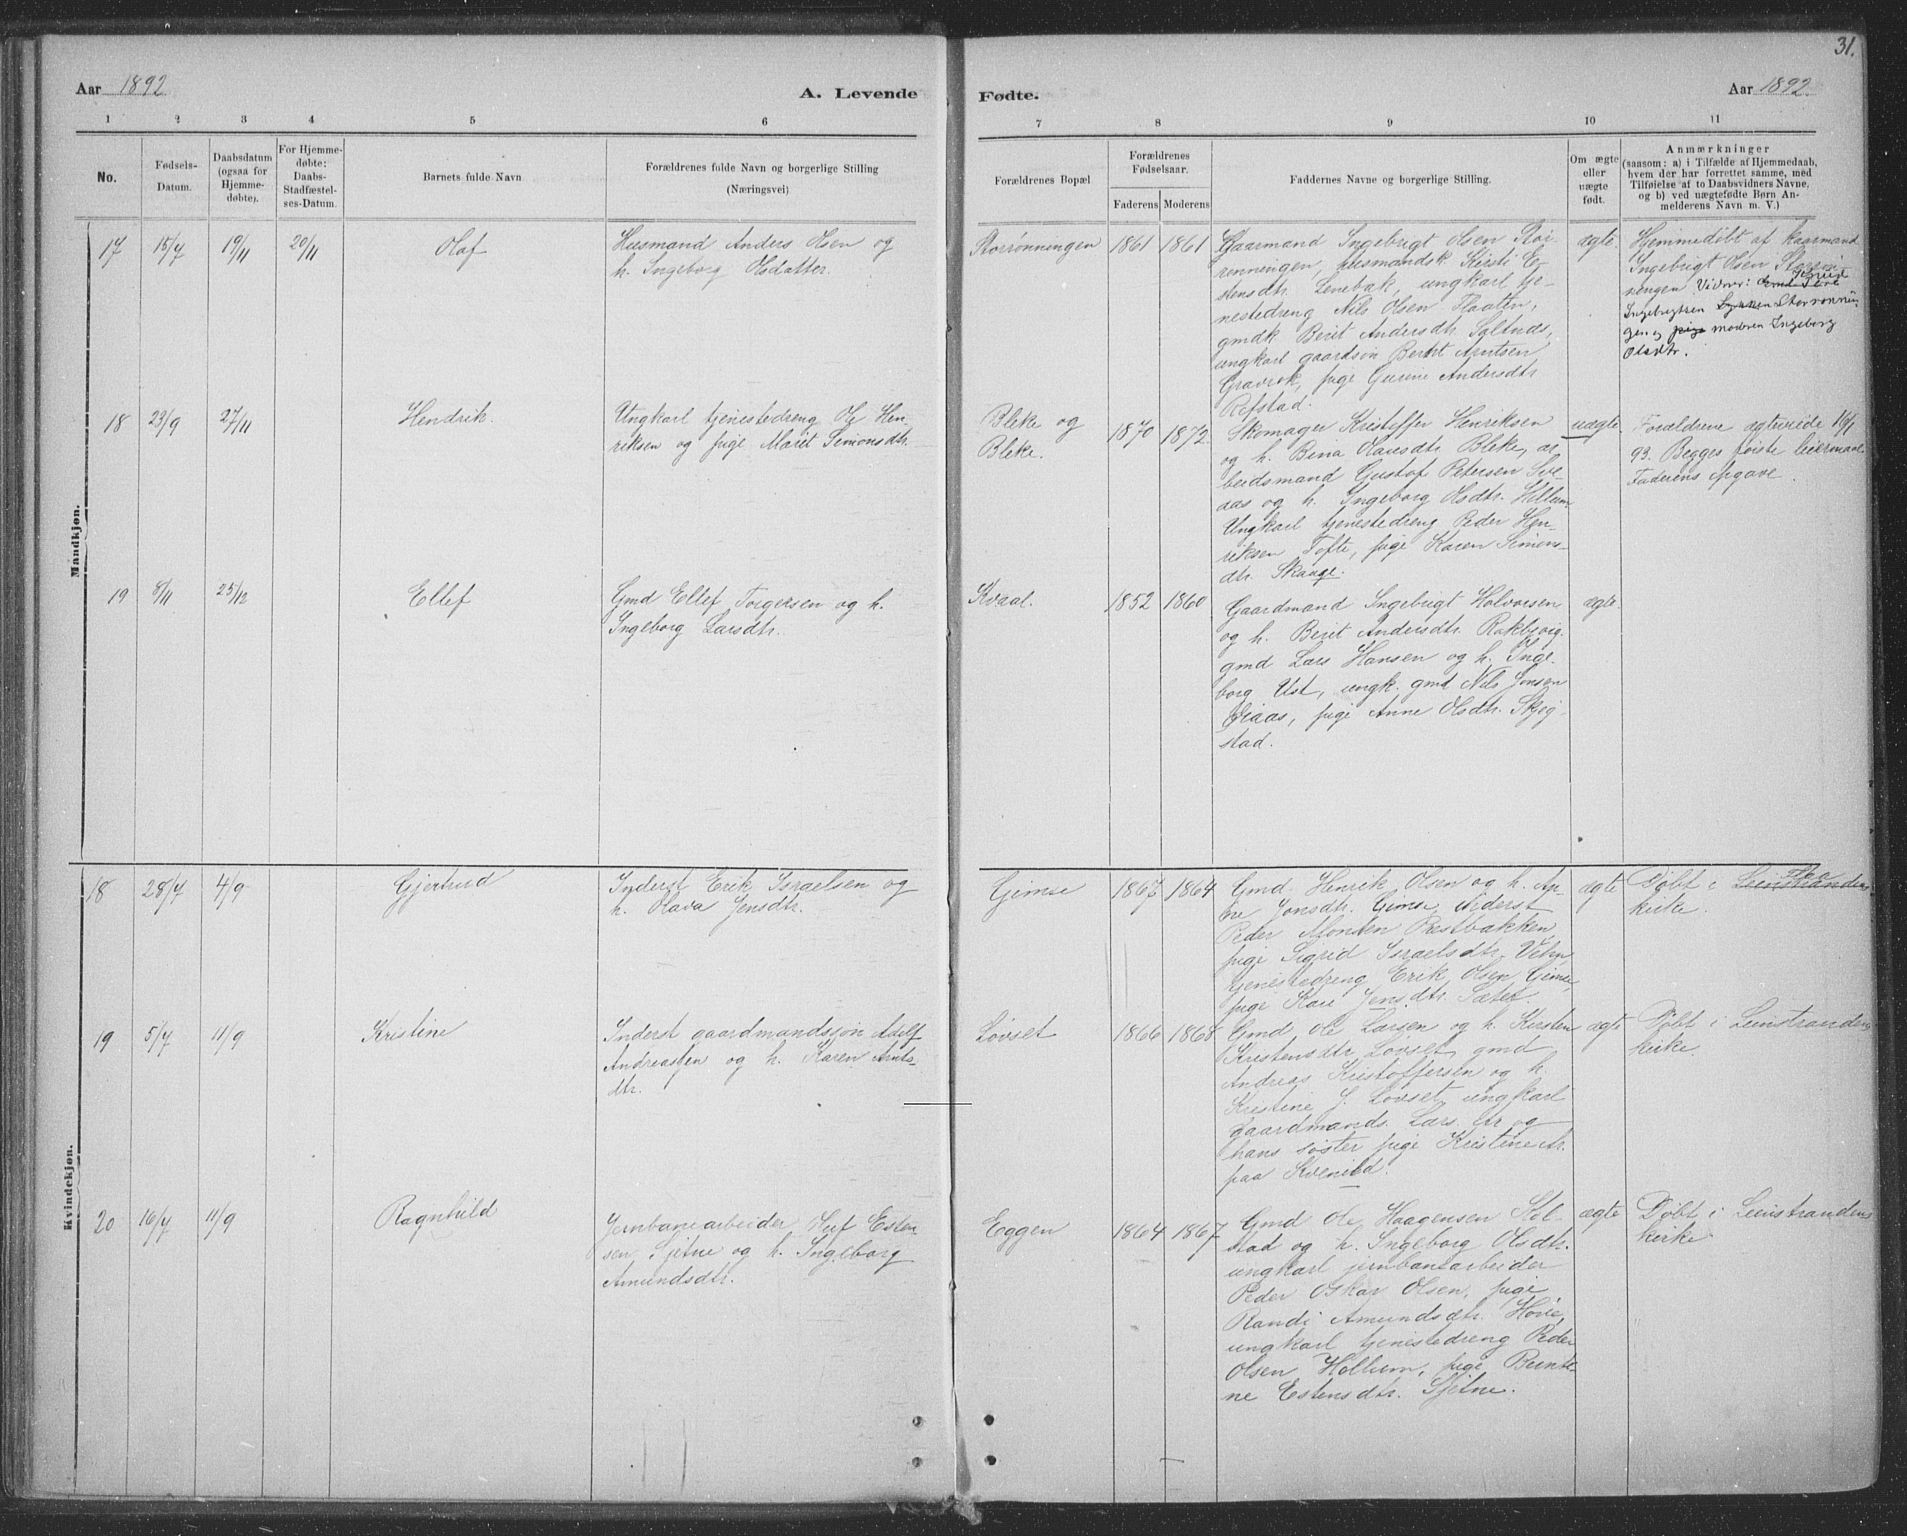 31.
Aar 1892
A. Levende
Fødte.
Aar 1892.
1 2 3 4 5 6
7 8 9 10 11
No.
Fødsels-
Datum.
Daabsdatum
(ogsaa for
Hjemme-
døbte).
For Hjemme-
døbte;
Daabs-
Stadfæstel-
ses-Datum.
Barnets fulde Navn
Forældrenes fulde Navn og borgerlige Stilling
(Næringsvei)
Forældrenes Bopæl
Forældrenes
Fødselsaar.
Faderens Moderens
Faddernes Navne og borgerlige Stilling.
Om ægte
eller
uægte
født.
Anmærkninger
(saasom: a) i Tilfælde af Hjemmedaab,
hvem der har forrettet samme, med
Tilføielse af to Daabsvidners Navne,
og b) ved uægtefødte Børn An-
melderens Navn m. V.)
Mandkjøn.
17 15/7 19/11 20/11 Olaf
Husmand Anders Olsen og
h. Ingeborg Olsdatter
Storrønningen 1861 1861
Gaarmand Ingebrigt Olsen Stor-
rønningen, husmandsk. Kirsti E-
stensdtr. Lenebak, ungkarl tje-
nestedreng Nils Olsen Flaaten,
gmdk. Berit Andersdtr.
ungkarl gaardsøn Arntsen
Gravrok, pige Gurine Andersdtr
Refstad.
ægte
Hjemmedøbt af Gaarmand
Ingebrigt Olsen Storrøn-
ningen Vidner:
Ingebrigtsen Storrønnin
gen og pige moderen Ingeborg
Olsdtr.
18 23/9 27/11 Hendrik.
Ungkarl tjenestedreng Ole Hen-
riksen og pige Marit Simonsdtr.
Bleke og
Bleke.
1870 1872
Skomager Kristoffer Henriksen
og h. Bena Clausdtr. Bleke, ar-
beidsmand Gustof Petersen Sve-
aas og h. Ingeborg Olsdtr.
Ungkarl tjenestedreng Peder Hen-
riksen Tofte, pige Karen Simons-
dtr. Skauge.
uægte
Forældrene ægteviede 16/1
93. Begges første leiermaal
Faderens opgave.
19 8/11 25/12 Ellef
Gmd Ellef Torgersen og h.
Ingeborg Larsdtr.
Kvaal. 1852 1860
Gaardmand Ingebrigt Holvorsen
og h. Berit Andersdtr. Rokbjoig.
gmd Lars Hansen og h. Inge-
borg Ust, ungk. gmd Nils Jonsen
pige Anne Olsdtr. Skjeg-
stad.
ægte
Kvindekjøn.
18 28/7 4/9 Gjertrud
Inderst Erik Israelsen og
h. Olava Jensdtr.
Gimse 1867 1864
Gmd Henrik Olsen og h. An-
ne Jonsdtr. Gimse, Inderst
Peder Monsen Prestbakken
pige Sigrid Israelsdtr.
tjenestedreng Erik Olsen Gimse,
pige Kari Jensdtr. Sætet.
ægte
Døbt i Flaa
Leinstrandens
kirke.
19 5/7 11/9 Kristine
Inderst gaardmandssøn Adolf
Andreassen og h. Karen Arnts-
dtr.
Løvset 1866 1868
Gmd Ole Larsen og h. Kirsten
Kristensdtr Løvset, gmd
Andreas Kristoffersen og h.
Kristine J. Løvset, ungkarl
gaardmands. Lars Or og
hans søster pige Kristine
paa Kvenild.
ægte
Døbt i Leinstrandens
kirke.
20 16/7 11/9 Ragnhild
Jernbanearbeider Oluf Esten-
sen Sjetne og h. Ingeborg
Amundsdtr.
Eggen 1864 1867
Gmd Ole Haagensen Kol-
stad og h. Ingeborg Olsdtr.
ungkarl jernbanearbeider
Peder Oskar Olsen, pige
Randi Amundsdtr.
ungkarl tjenestedreng Peder
Olsen Hollum, pige Bernte-
ne Estensdtr. Sjetne.
ægte
Døbt i Leinstrandens
kirke